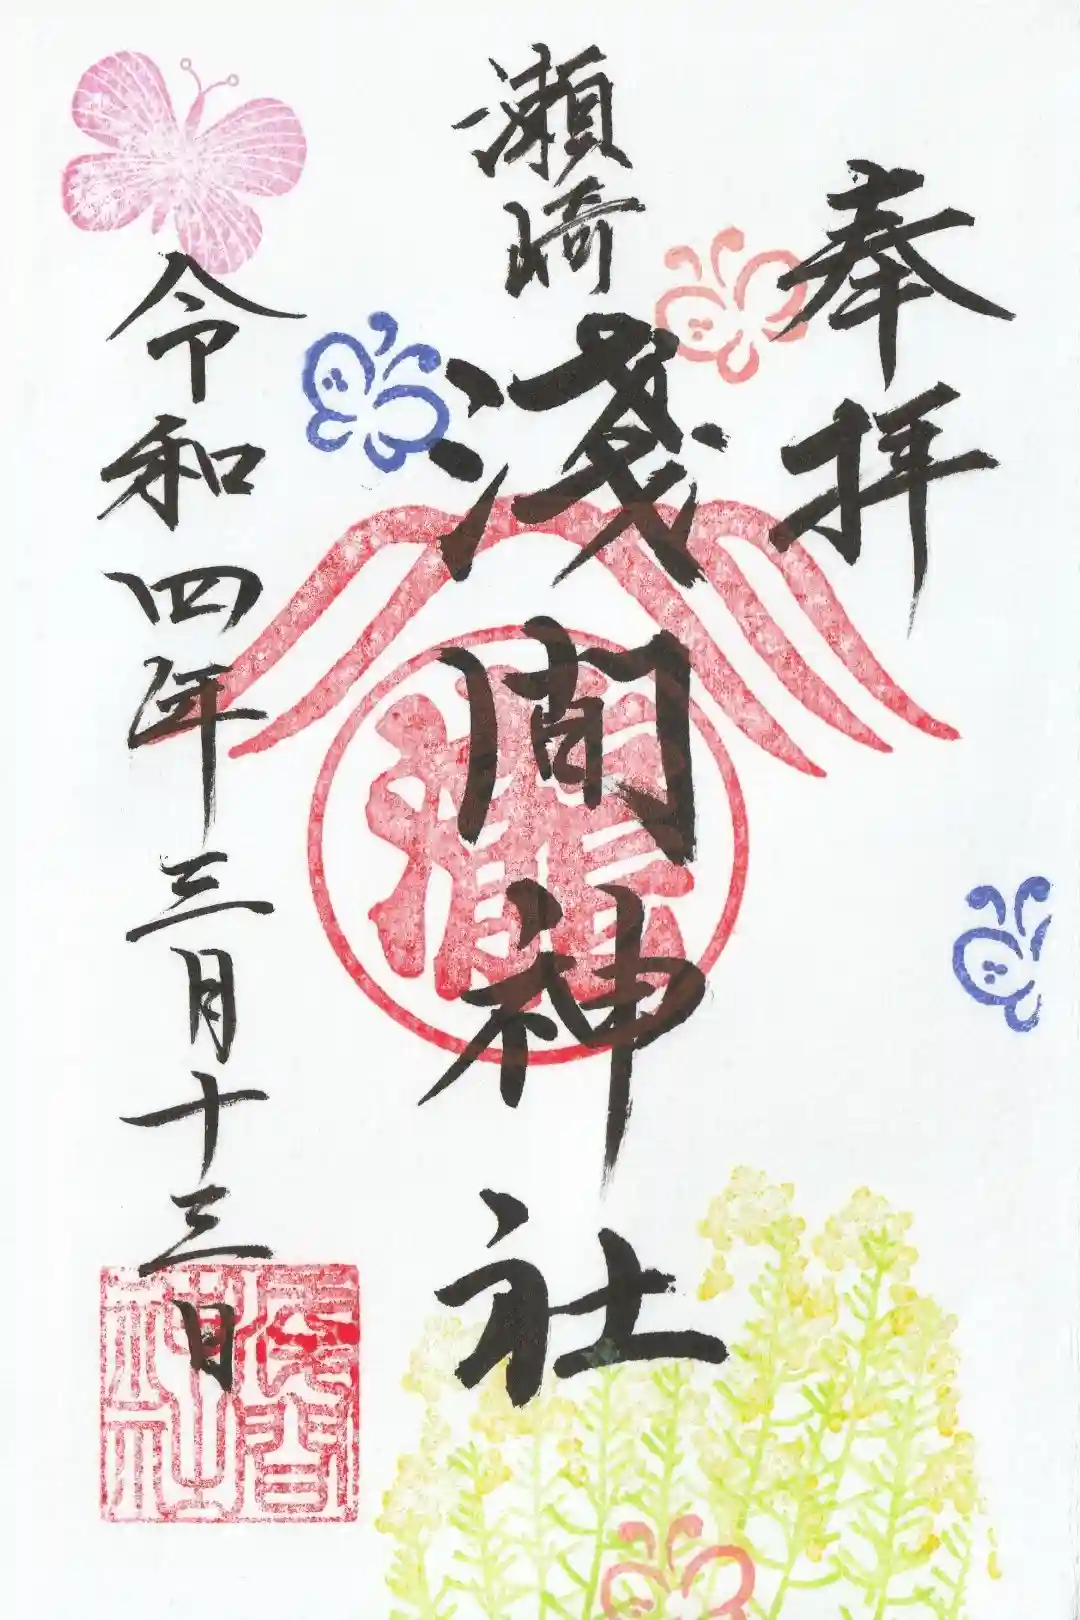 奉拝
瀬崎
浅間神社
令和四年三月十三日
浅間神社